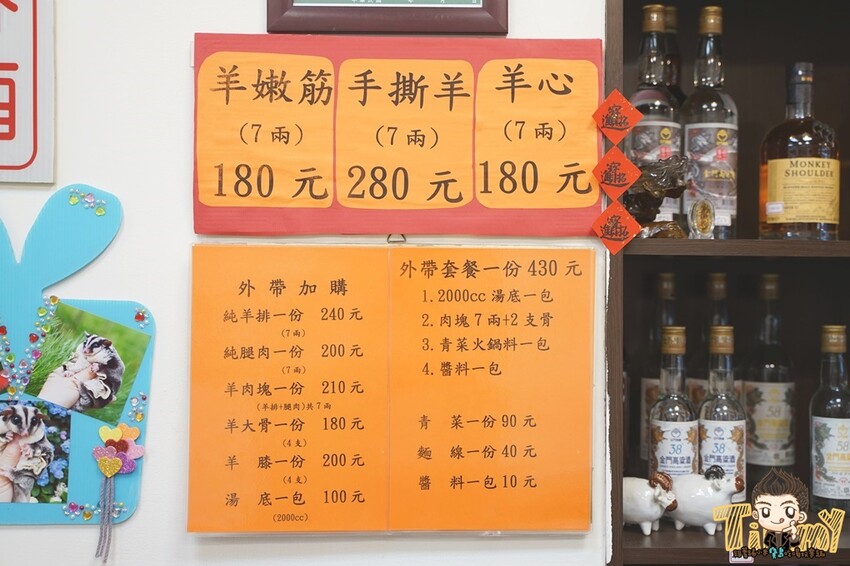 羊嫩筋
(7兩)
180 元
手撕羊
(7兩)
280 元
羊心
(7兩)
180 元
外帶加購
純羊排一份 240元
(7兩)
純腿肉一份 200元
(7兩)
羊肉塊一份 210元
(羊排+腿肉)共7兩
羊大骨一份 180元
(4支)
羊 膝一份 200元
(4支)
湯 底一包 100元
(2000cc)
外帶套餐一份 430 元
1.2000cc 湯底一包
2.肉塊7兩+2支骨
3.青菜火鍋料一包
4.醬料一包
青 菜一份 90 元
麵 線一份 40 元
醬 料一份 10 元
MONKEY
SHOULDER
38
金門高粱酒
38
金門高粱酒
58
TiMMY